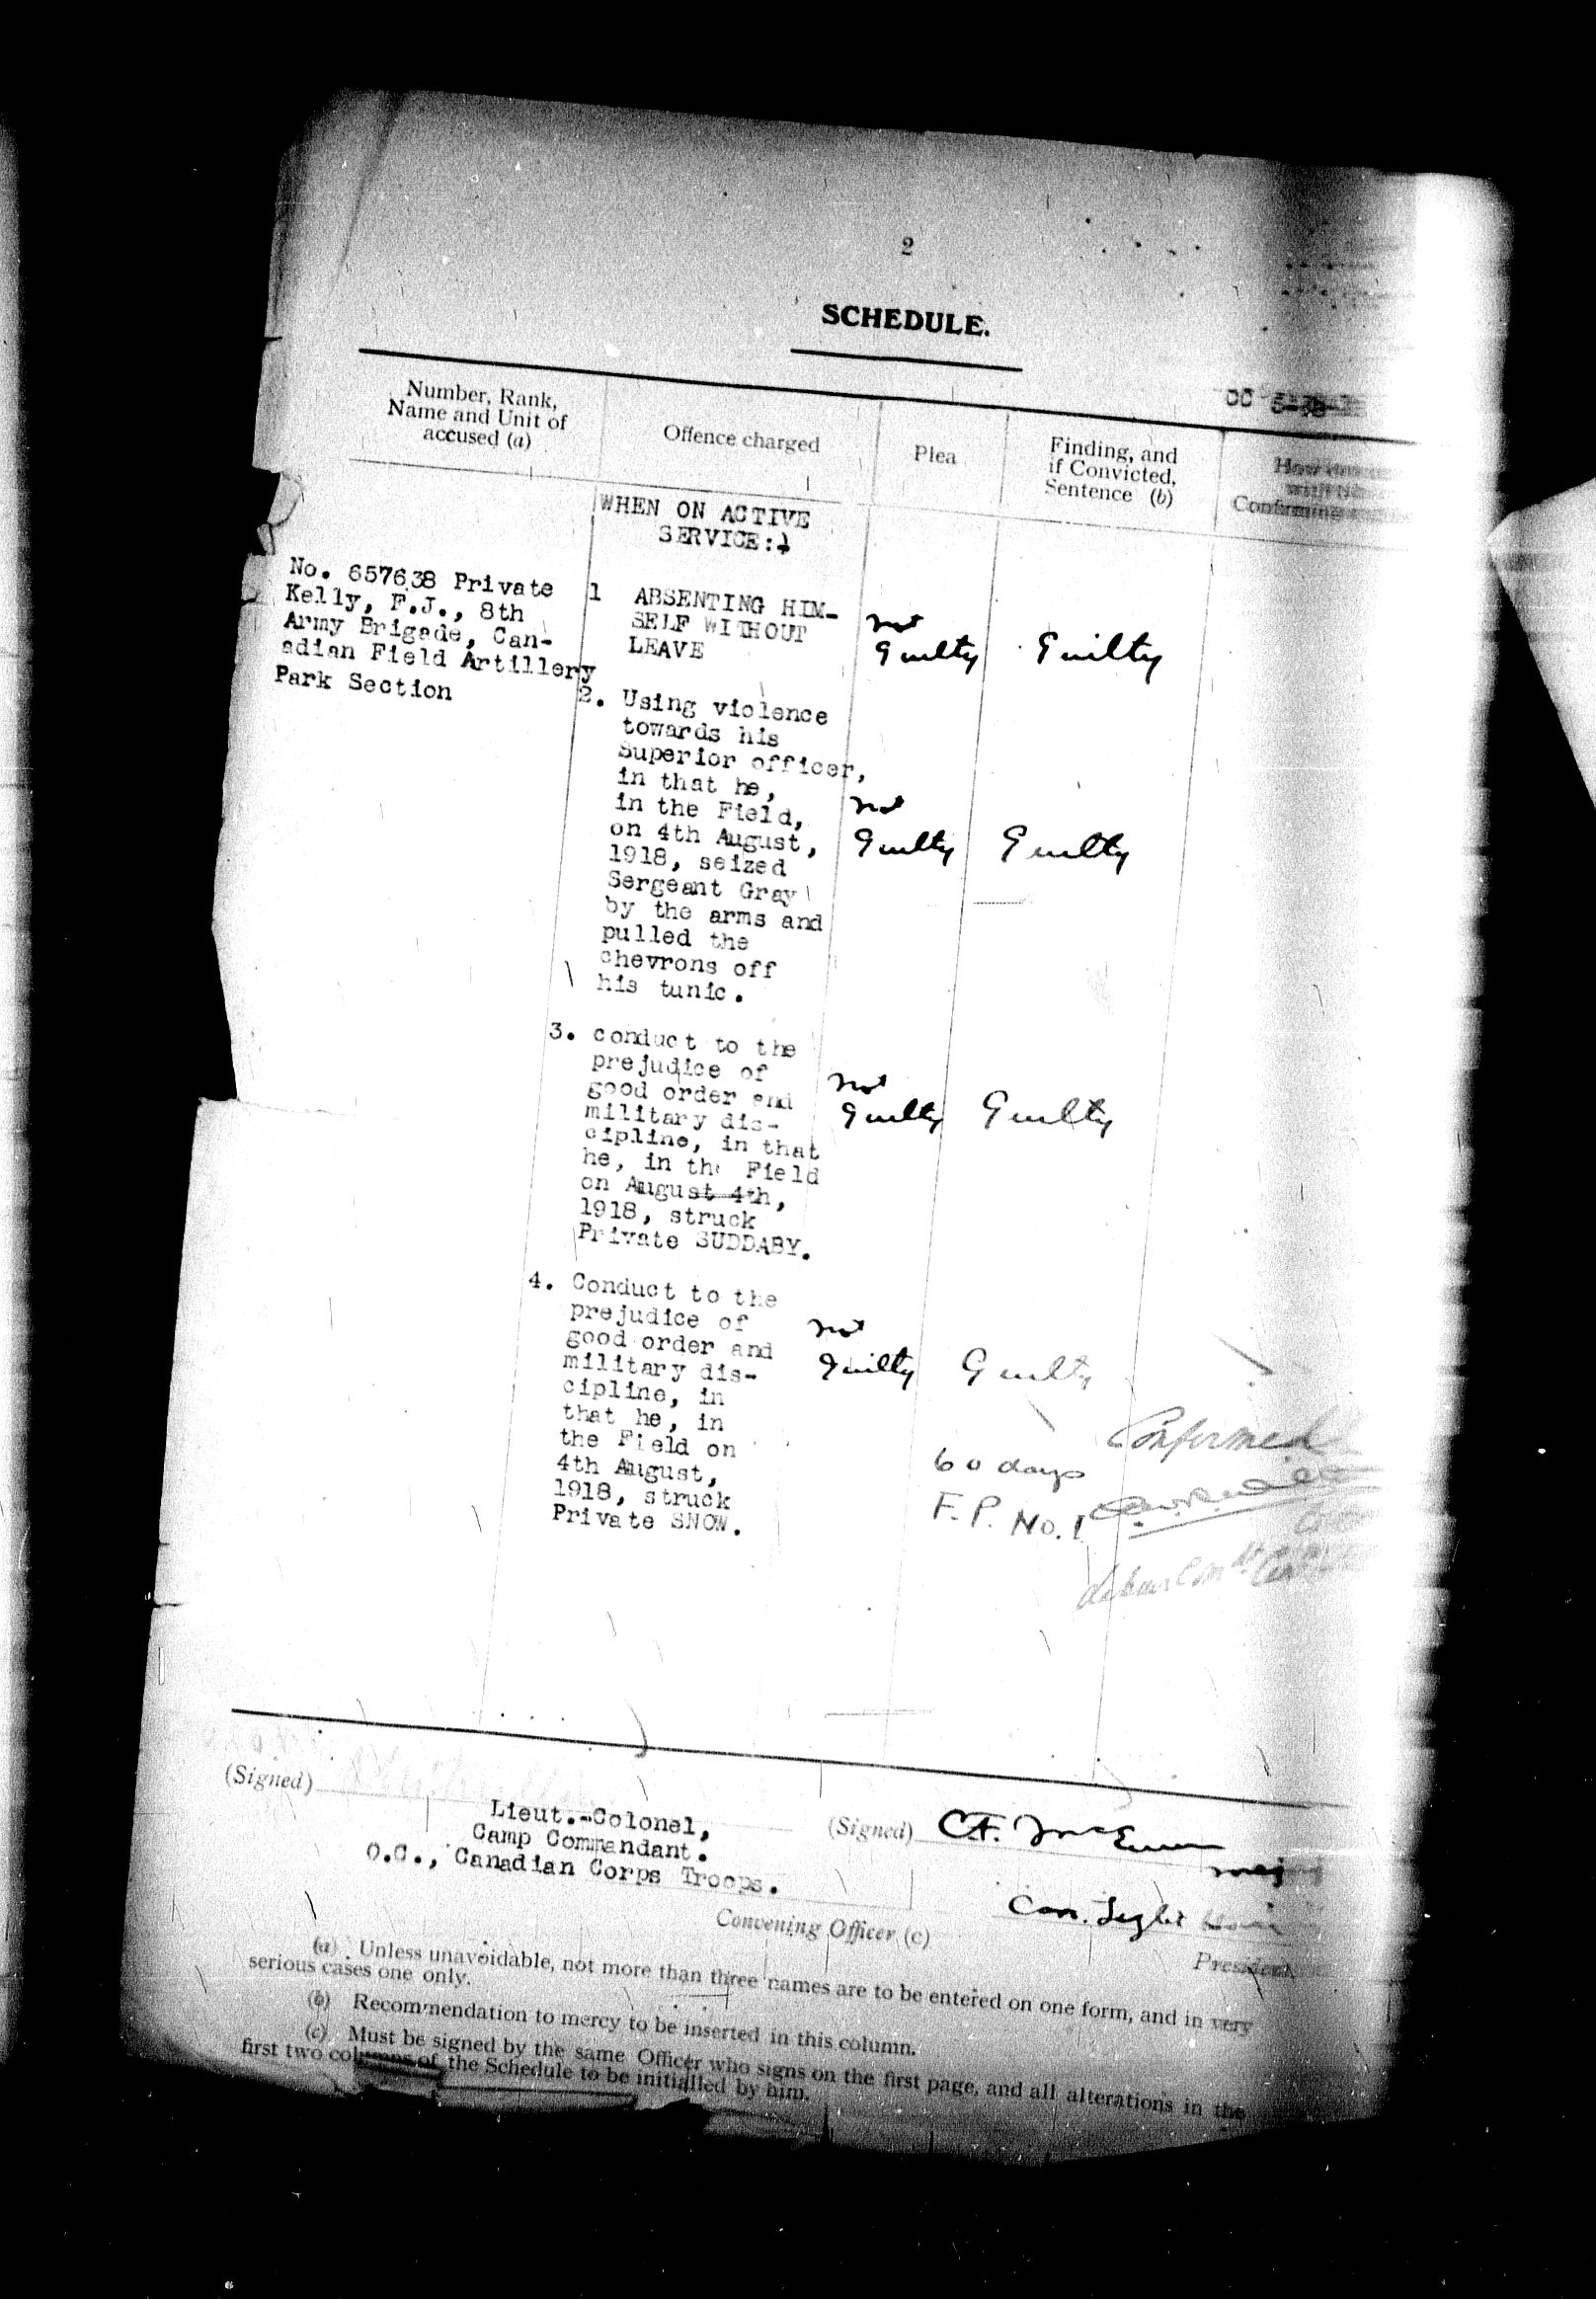 2
SCHEDULE.
Number, Rank,
Name and Unit of
accused (a)
Offence charged
Plea
Finding, and
if Convicted,
Sentence (b)
Confirming
WHEN ON ACTIVE
SERVICE:
No. 657638 Private
Kelly, F.J., 8th
Army Brigade, Can-
adian Field Artillery
Park Section
1 ABSENTING HIM-
SELF WITHOUT
LEAVE
not
Guilty
Guilty
2. Using violence
towards his
Superior officer,
in that he,
in the Field,
on 4th August,
1918, seized
Sergeant Gray
by the arms and
pulled the
chevrons off
his tunic.
not
Guilty
Guilty
3. conduct to the
prejudice of
good order and
military dis-
cipline, in that
he, in the Field
on August 4th,
1918, struck
Private SUDDABY.
not
Guilty
Guilty
4. Conduct to the
prejudice of
good order and
military dis-
cipline, in
that he, in
the Field on
4th August,
1918, struck
Private SNOW.
not
Guilty
Guilty
60 days
F.P. No. 1
Confirmed
(Signed)
Lieut.-Colonel,
Camp Commandant.
O.C., Canadian Corps Troops.
Convening Officer (c)
(Signed) C.F. McEwen
Maj
Can. Light
President
(a) Unless unavoidable, not more than three names are to be entered on one form, and in very
serious cases one only.
(b) Recommendation to mercy to be inserted in this column.
(c) Must be signed by the same Officer who signs on the first page, and all alterations in the
first two columns of the Schedule to be initialled by him.